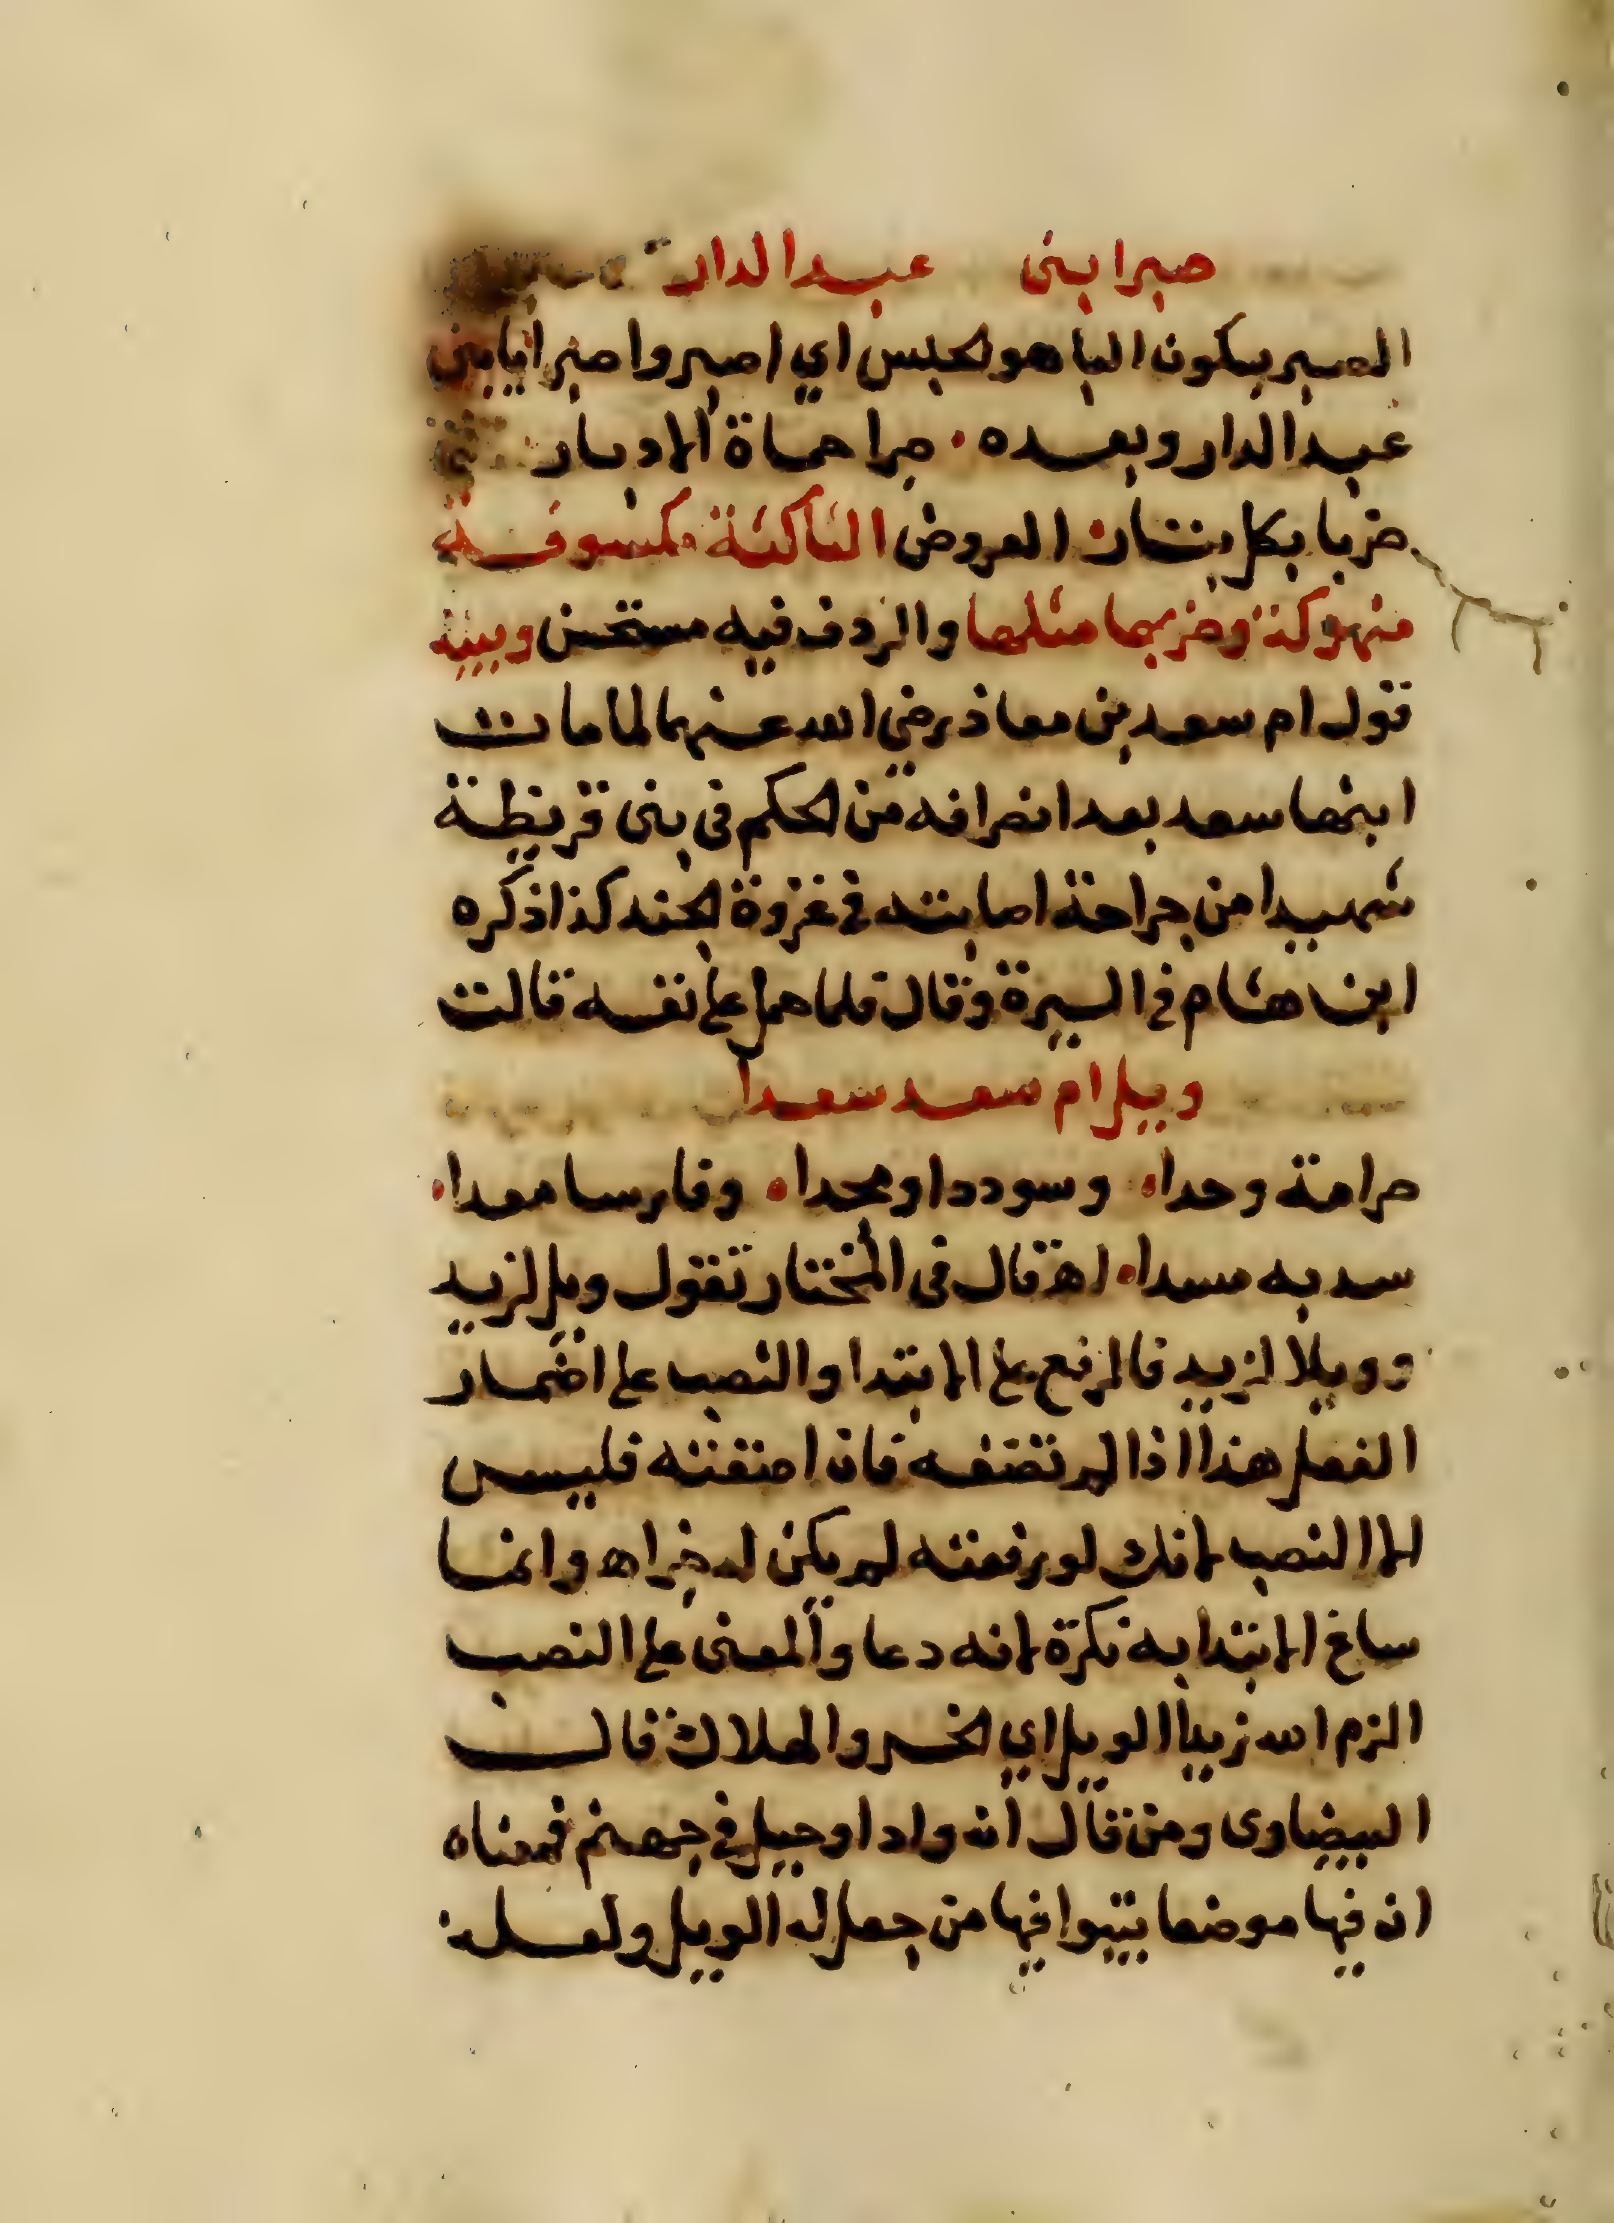 صبرا بنى عبد الدار
الصبر بسكون البا هو الحبس اي اصبروا صبرا يا بنى
عبد الدار وبعده • صبرا حماة الادبار
ضربا بكل بتار • العروض الثالثة مكسوفة
منهوكة وضربها مثلها والردف فيه مستحسن وبيته
قول ام سعد بن معاذ رضي الله عنهما لما مات
ابنها سعد بعد انصرافه من الحكم فى بنى قريظة
شهيدا من جراحة اصابته في غزوة الخند كذا ذكره
ابن هشام في السيرة وقال فلما حمل على نعشه قالت
ويل ام سعد سعدا
صرامة وحدا • وسوددا ومجدا • وفارسا معدا •
سد به مسدا • اهـ قال فى المختار تقول ويل لزيد
وويلا لزيد فالرفع على الابتدا والنصب على اضمار
الفعل هذا اذا لم تضفه فان اضفته فليس
الا النصب لانك لو رفعته لم يكن له خبر اهـ وانما
ساغ الابتدا به نكرة لانه دعا والمعنى على النصب
الزم الله زيدا الويل اي الخسر والهلاك قال
البيضاوى ومن قال انه واد او جبل في جهنم فمعناه
ان فيها موضعا يتبوا فيها من جعل له الويل ولعله